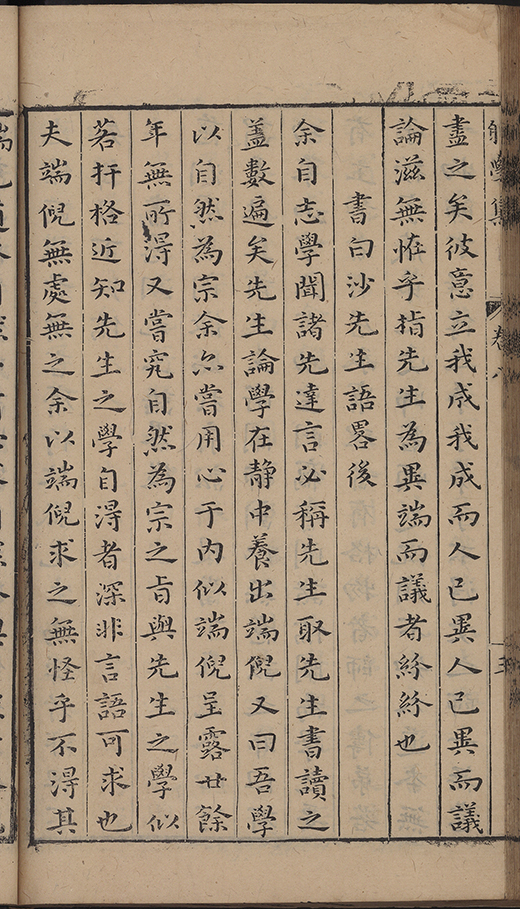 學集 卷八
盡之矣彼意立我成我成而人已異人已異而議
論滋無恠乎指先生為異端而議者紛紛也
書白沙先生語畧後
余自志學聞諸先達言必稱先生取先生書讀之
葢數遍矣先生論學在靜中養出端倪又曰吾學
以自然為宗余亦嘗用心于內似端倪呈露廿餘
年無所得又嘗究自然為宗之旨與先生之學似
若扞格近知先生之學自得者深非言語可求也
夫端倪無處無之余以端倪求之無怪乎不得其